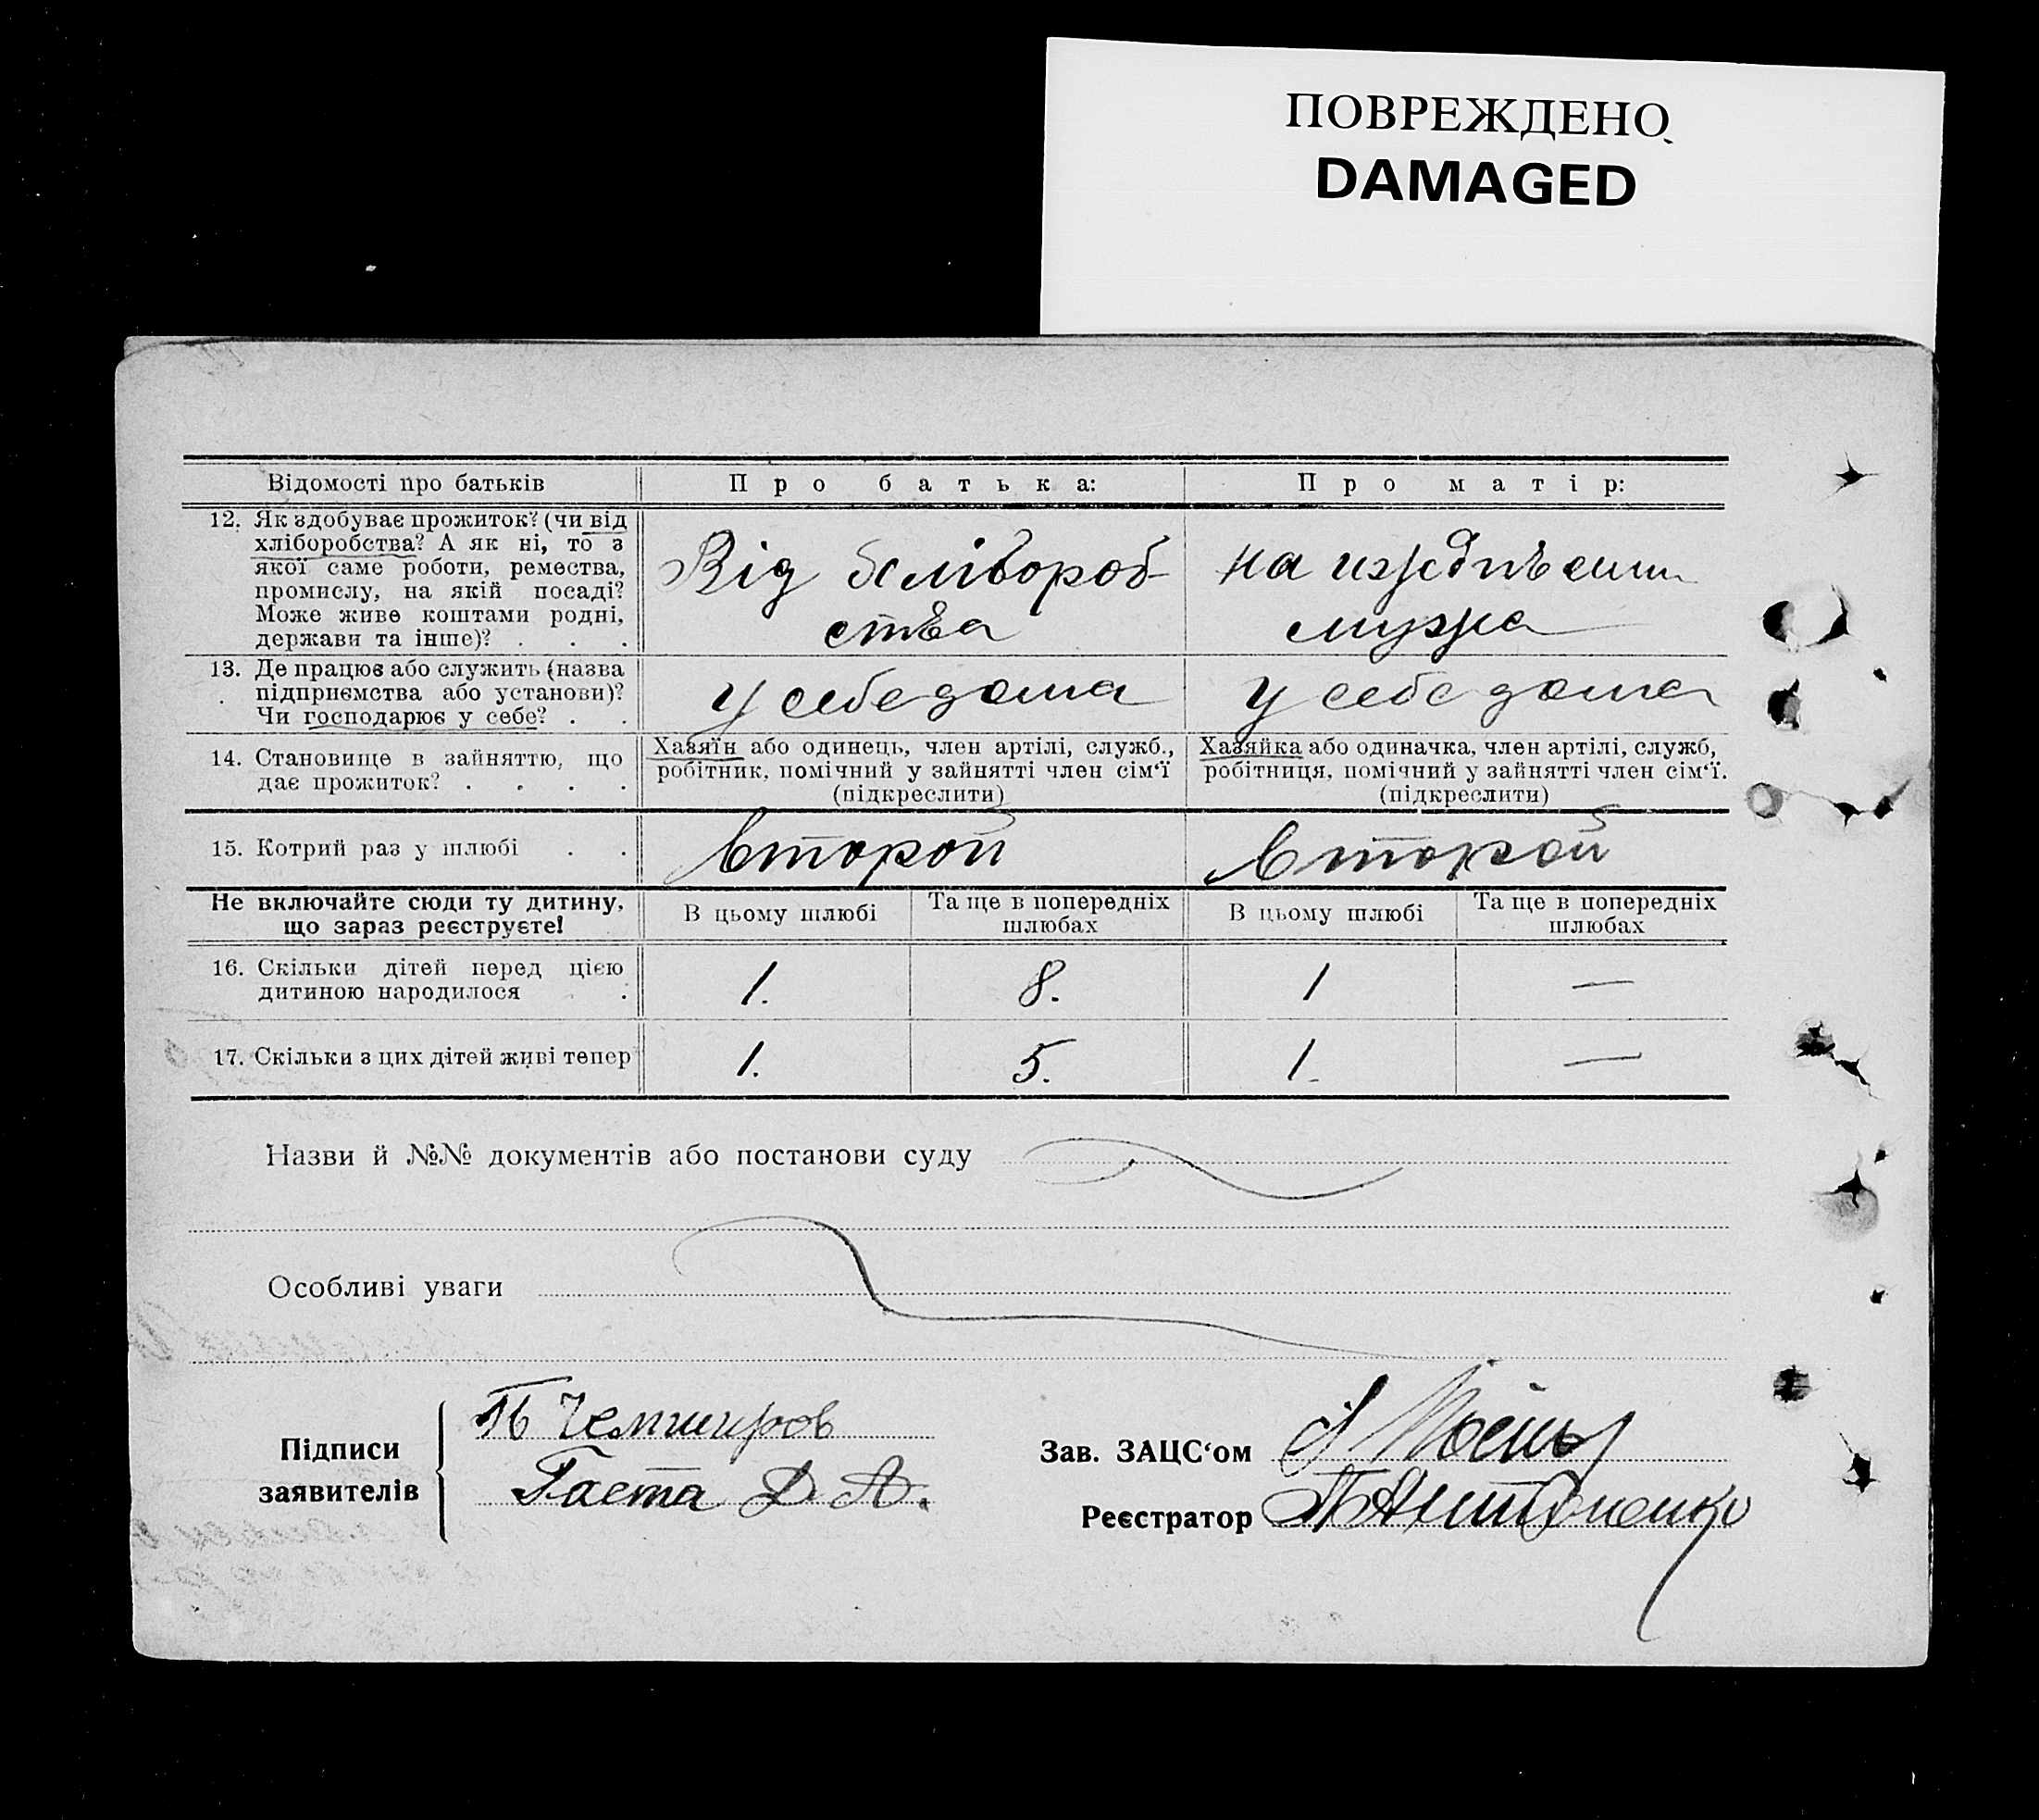 ПОВРЕЖДЕНО
DAMAGED
Відомості про батьків
Про батька:
Про матір:
12. Як здобуває прожиток? (чи від
хліборобства? А як ні, то з
якої саме роботи, ремества,
промислу, на якій посаді?
Може живе коштами родні,
держави та інше)? . . .
Від хлібороб-
ства
на иждивении
мужа
13. Де працює або служить (назва
підприємства або установи)?
Чи господарює у себе? . .
у себе дома
у себе дома
14. Становище в зайняттю, що
дає прожиток? . . . .
Хазяїн або одинець, член артілі, служб.,
робітник, помічний у зайнятті член сім'ї
(підкреслити)
Хазяйка або одиначка, член артілі, служб,
робітниця, помічний у зайнятті член сім'ї.
(підкреслити)
15. Котрий раз у шлюбі . .
второй
второй
Не включайте сюди ту дитину,
що зараз реєструєте!
В цьому шлюбі
Та ще в попередніх
шлюбах
В цьому шлюбі
Та ще в попередніх
шлюбах
16. Скільки дітей перед цією
дитиною народилося .
1. 8. 1 —
17. Скільки з цих дітей живі тепер
1. 5. 1. —
Назви й №№ документів або постанови суду
Особливі уваги
Підписи
заявителів
Чемширов
Гаста Д. А.
Зав. ЗАЦС'ом
Реєстратор
П Антоненко